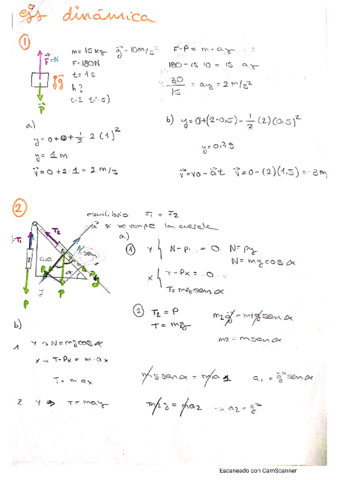 Ejs dinámica
①
m=15kg g=10m/s²
F=180N
t=1s
h?
F=N
P
F-P = m·ay
180-15·10 = 15 ay
30/15 = ay = 2 m/s²
a)
y = 0+0+½·2(1)²
y = 1m
v = 0+2·1 = 2 m/s
b) y=0+(2·0,5)-½(2)(0,5)²
v=v0-at v=0-(2)(1,5)=-3m
②
equilibrio T1 = T2
si se rompe la cuerda
a)
① Y { N-P = 0 N=Py
N=mg cosα
X { T-Px = 0
T=mg senα
② T2=P
T=mg
m2g=m1g senα
m2=m senα
b)
1 Y → N=mg cosα
X → T-Px = m·ax
T=m ax
m1g senα = m1a1 a1=g senα
2 Y → T=may
m2g=m2a2 → a2=g
Escaneado con CamScanner